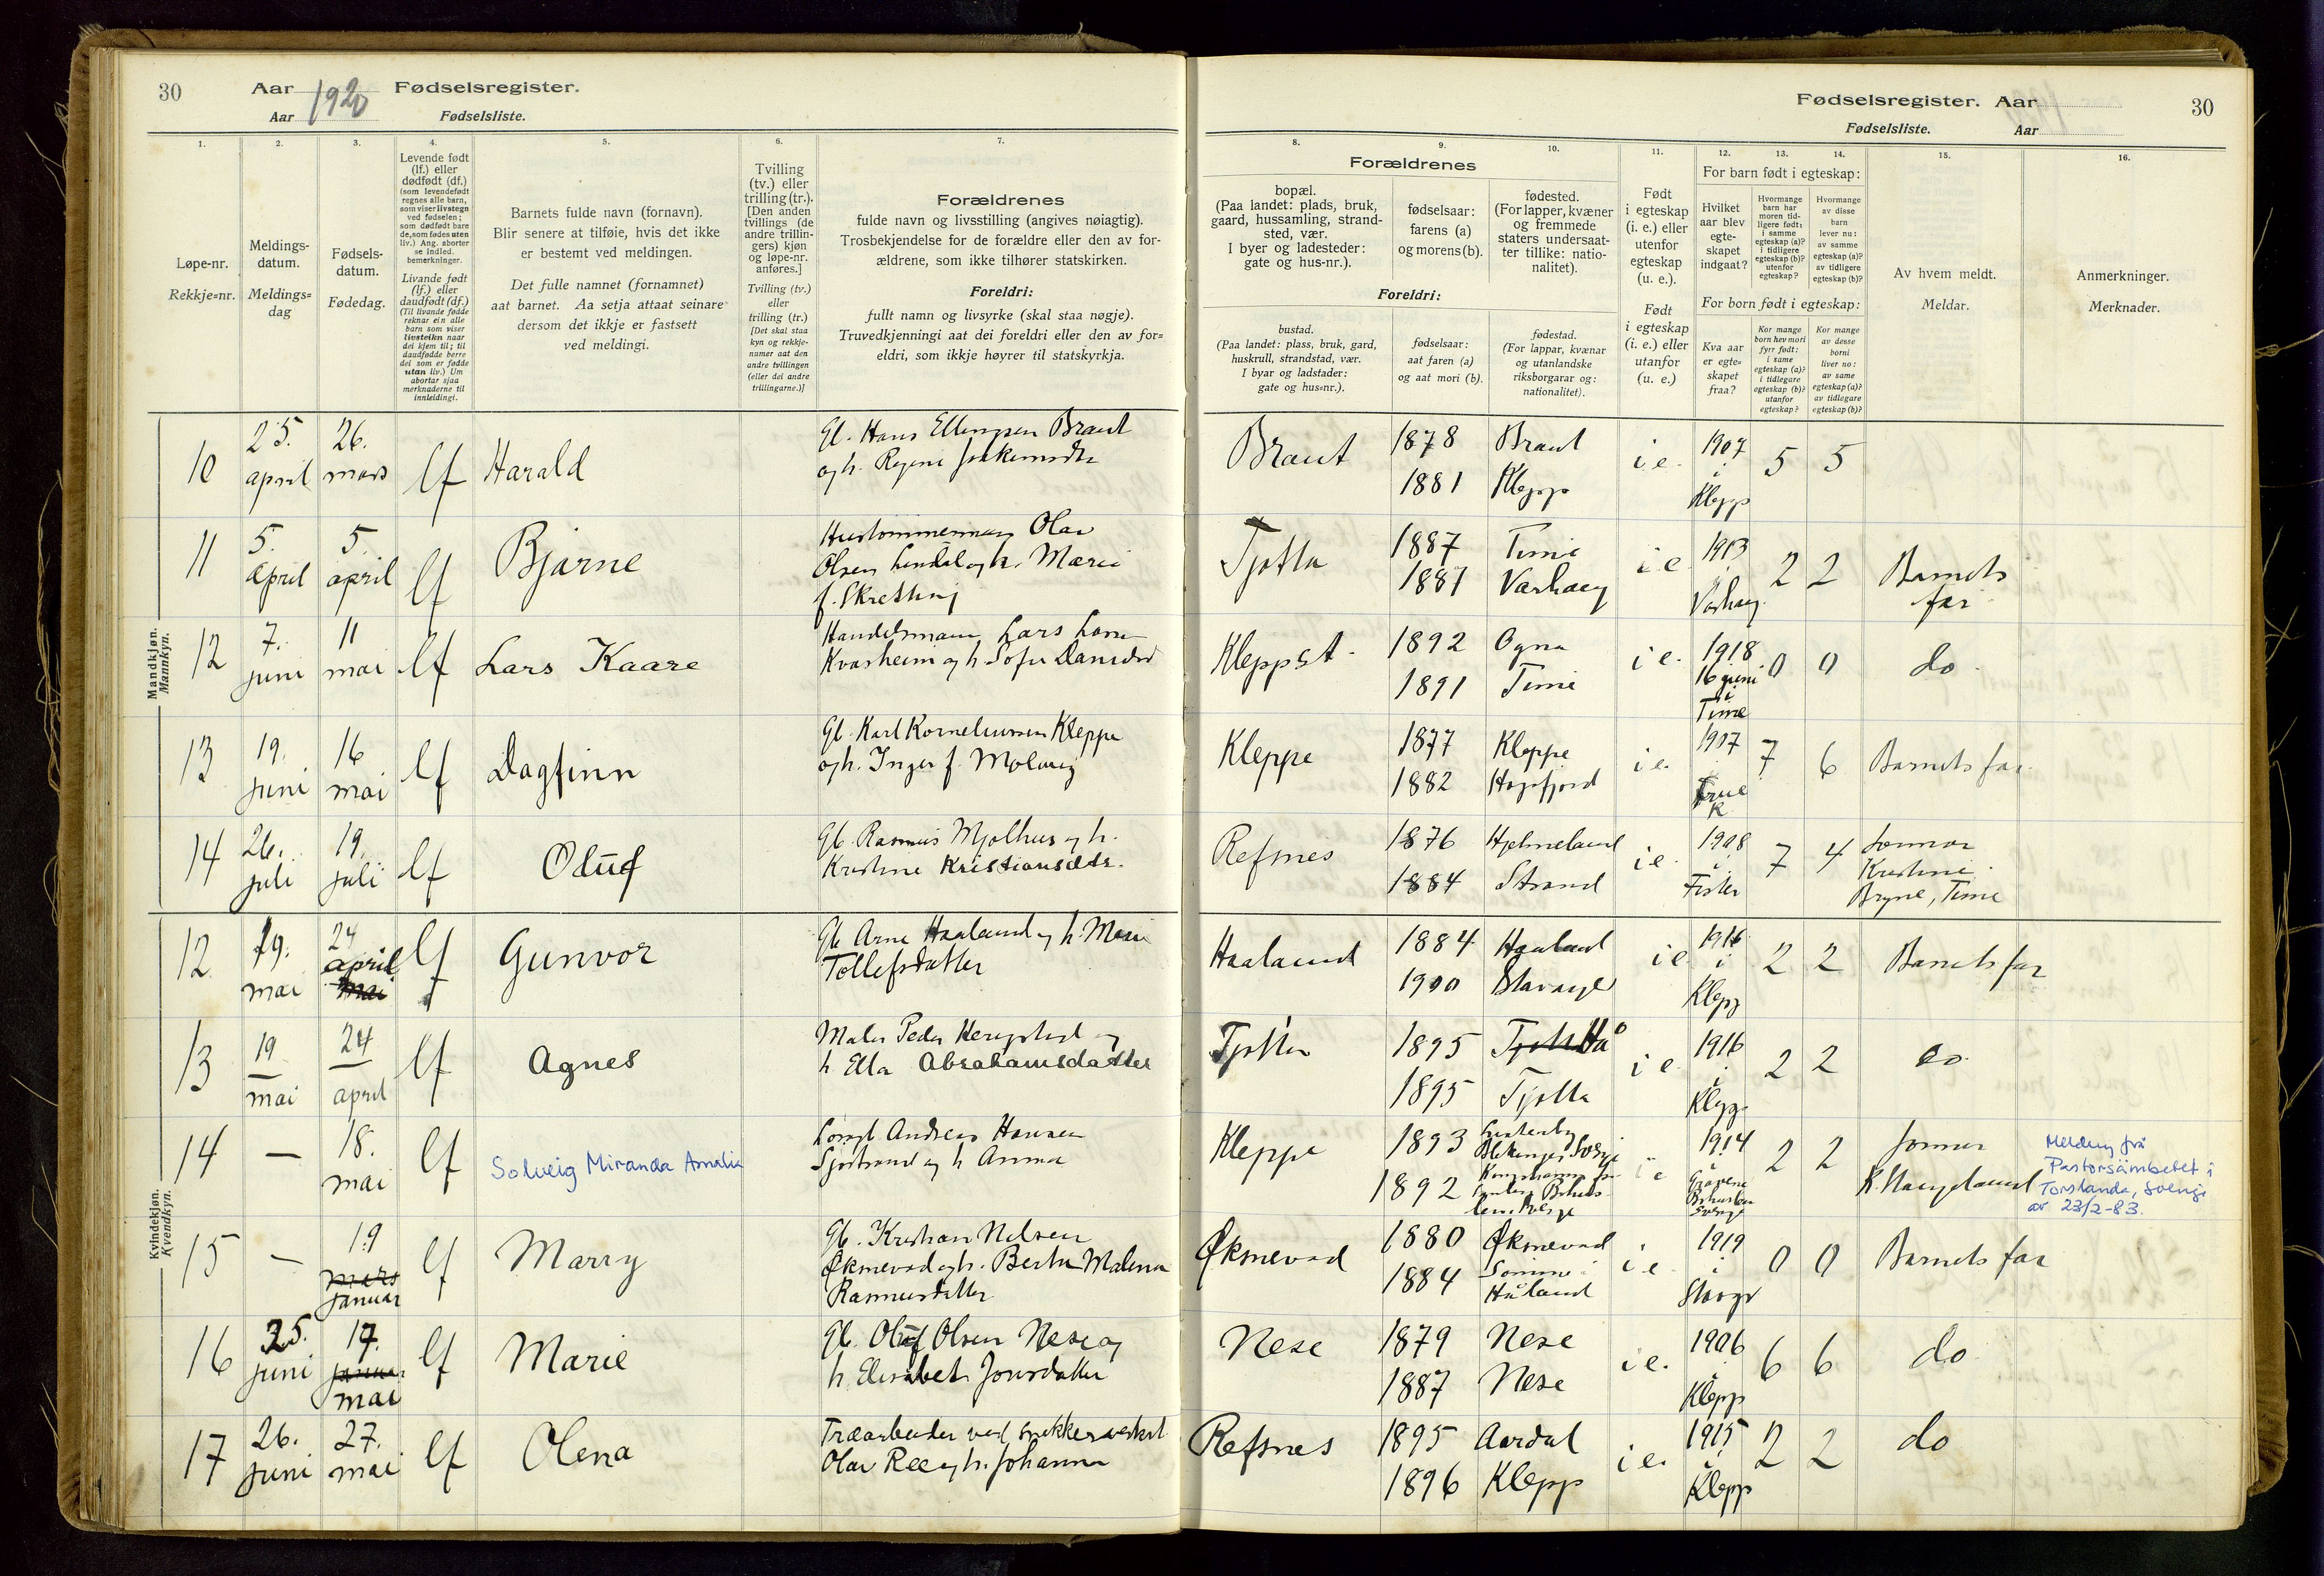 30 Aar 1920 Fødselsregister.
Aar Fødselsliste.
Fødselsregister. Aar 30
Fødselsliste. Aar
1. 2. 3. 4. 5. 6. 7.
Løpe-nr.
Rekkje=nr.
Meldings-
datum.
Meldings=
dag
Fødsels-
datum.
Fødedag.
Levende født
(lf.) eller
dødfødt (df.)
(som levendefødt
regnes alle barn,
som viser livstegn
ved fødselen;
som dødfødt bare
de, som fødes uten
liv.) Ang. aborter
se indled.
bemerkninger.
Livande født
(lf.) eller
daudfødt (df.)
(Til livande fødde
reknar ein alle
barn som viser
livsteikn naar
dei kjem til; til
daudfødde berre
dei som er fødde
utan liv.) Um
abortar sjaa
merknaderne til
innleidingi.
Barnets fulde navn (fornavn).
Blir senere at tilføie, hvis det ikke
er bestemt ved meldingen.
Det fulle namnet (fornamnet)
aat barnet. Aa setja attaat seinare
dersom det ikkje er fastsett
ved meldingi.
Tvilling
(tv.) eller
trilling (tr.).
[Den anden
tvillings (de
andre trillin-
gers) kjøn
og løpe-nr.
anføres.]
Tvilling (tv.)
eller
trilling (tr.)
[Det skal staa
kyn og rekkje-
numer aat den
andre tvillingen
(eller dei andre
trillingarne.)]
Forældrenes
fulde navn og livsstilling (angives nøiagtig).
Trosbekjendelse for de forældre eller den av for-
ældrene, som ikke tilhører statskirken.
Foreldri:
fullt namn og livsyrke (skal staa nøgje).
Truvedkjenningi aat dei foreldri eller den av for=
eldri, som ikkje høyrer til statskyrkja.
8. 9. 10. 11. 12. 13. 14. 15. 16.
Forældrenes
bopæl.
(Paa landet: plads, bruk,
gaard, hussamling, strand-
sted, vær.
I byer og ladesteder:
gate og hus-nr.).
fødselsaar:
farens (a)
og morens (b).
fødested.
(For lapper, kvæner
og fremmede
staters undersaat-
ter tillike: natio-
nalitet).
Foreldri:
bustad.
(Paa landet: plass, bruk, gard,
huskrull, strandstad, vær.
I byar og ladstader:
gate og hus=nr.).
fødselsaar:
aat faren (a)
og aat mori (b).
fødestad.
(For lappar, kvænar
og utanlandske
riksborgarar og:
nationalitet).
Født
i egteskap
(i. e.) eller
utenfor
egteskap
(u. e.).
Født
i egteskap
(i. e.) eller
utanfor
(u. e.)
For barn født i egteskap:
Hvilket
aar blev
egte-
skapet
indgaat?
Hvormange
barn har
moren tid-
ligere født:
i samme
egteskap (a)?
i tidligere
egteskap (b)?
utenfor
egteskap?
Hvormange
av disse
barn
lever nu:
av samme
egteskap (a)?
av tidligere
egteskap (b)?
For born født i egteskap:
Kva aar
er egte=
skapet
fraa?
Kor mange
born hev mori
fyrr født:
i same
egteskap (a)?
i tidlegare
egteskap (b)?
utanfor
egteskap?
Kor mange
av desse
borni
liver no:
av same
egteskap (a)?
av tidlegare
egteskap (b)?
Av hvem meldt.
Meldar.
Anmerkninger.
Merknader.
Mandkjøn.
Mannkyn.
10 25. april 26. mars lf Harald
Gb. Hans Ellingsen Braut
og h.
Braut 1878 Braut i e. 1907 i Klepp 5 5
1881 Klepp
11 5. april 5. april lf Bjarne
Hustømmermann Olav
Olsen Lendal og h. Marie
f. Skretting
Tjøtta 1887 Time i e 1913 i Varhaug 2 2 Barnets far
1887 Varhaug
12 7. juni 11 mai lf Lars Kaare
Handelsmann Lars Larsen
Kvasheim og h. Sofie Danielsd
Kleppst. 1892 Ogna i e. 1918 16 juni i Time 0 0 do
1891 Time
13 19. juni 16 mai lf Dagfinn
Gb. Karl Korneliussen Kleppe
og h. Inger f. Molaug
Kleppe 1877 Kleppe i e. 1907 7 6 Barnets far
1882 Høgsfjord
14 26. juli 19. juli lf Oluf
Gb. Rasmus Mjølhus og h.
Kristine Kristiansdtr.
Refsnes 1876 Hjelmeland i e. 1908 i Fister 7 4 Jormor
1884 Strand Kristine
Bryne, Time
Kvindekjøn.
Kvendkyn.
12 19. mai 24 april mai lf Gunvor
Gb Arne Haaland og h. Marie
Tollefsdatter
Haaland 1884 Haaland i e 1916 i Klepp 2 2 Barnets far
1900 Stavanger
13 19 mai 24 april lf Agnes
Maler Peder Herigstad og
h Ella Abrahamsdatter
Tjøtta 1895 Tjøtta Hå i e 1916 i Klepp 2 2 do
1895 Tjøtta
14 — 18. mai lf Solveig Miranda Amalia
Andreas Hansen
Sjøstrand og h Anna
Kleppe 1893 i e 1914 2 2 Jormor
1892 K. Haugeland
Melding frå
Pastorsämbetet i
Torslanda, Sverige
av 23/2-83.
15 — 19 mars januar lf Marry
Gb. Kristian Nilsen
Øksnevad og h. Berta Malena
Rasmusdatter
Øksnevad 1880 Øksnevad i e. 1919 i Stavgr 0 0 Barnets far
1884 Sømme i
Håland
16 25. juni 17. januar mai lf Marie
Gb. Oluf Olsen Nese og
h. Elisabet Jonsdatter
Nese 1879 Nese i e. 1906 i Klepp 6 6 do
1887 Nese
17 26. juni 27. mai lf Olena
Træarbeider ved snekkerverkst
Olav Ree og h. Johanne
Refsnes 1895 Aardal i e. 1915 i Klepp 2 2 do
1896 Klepp